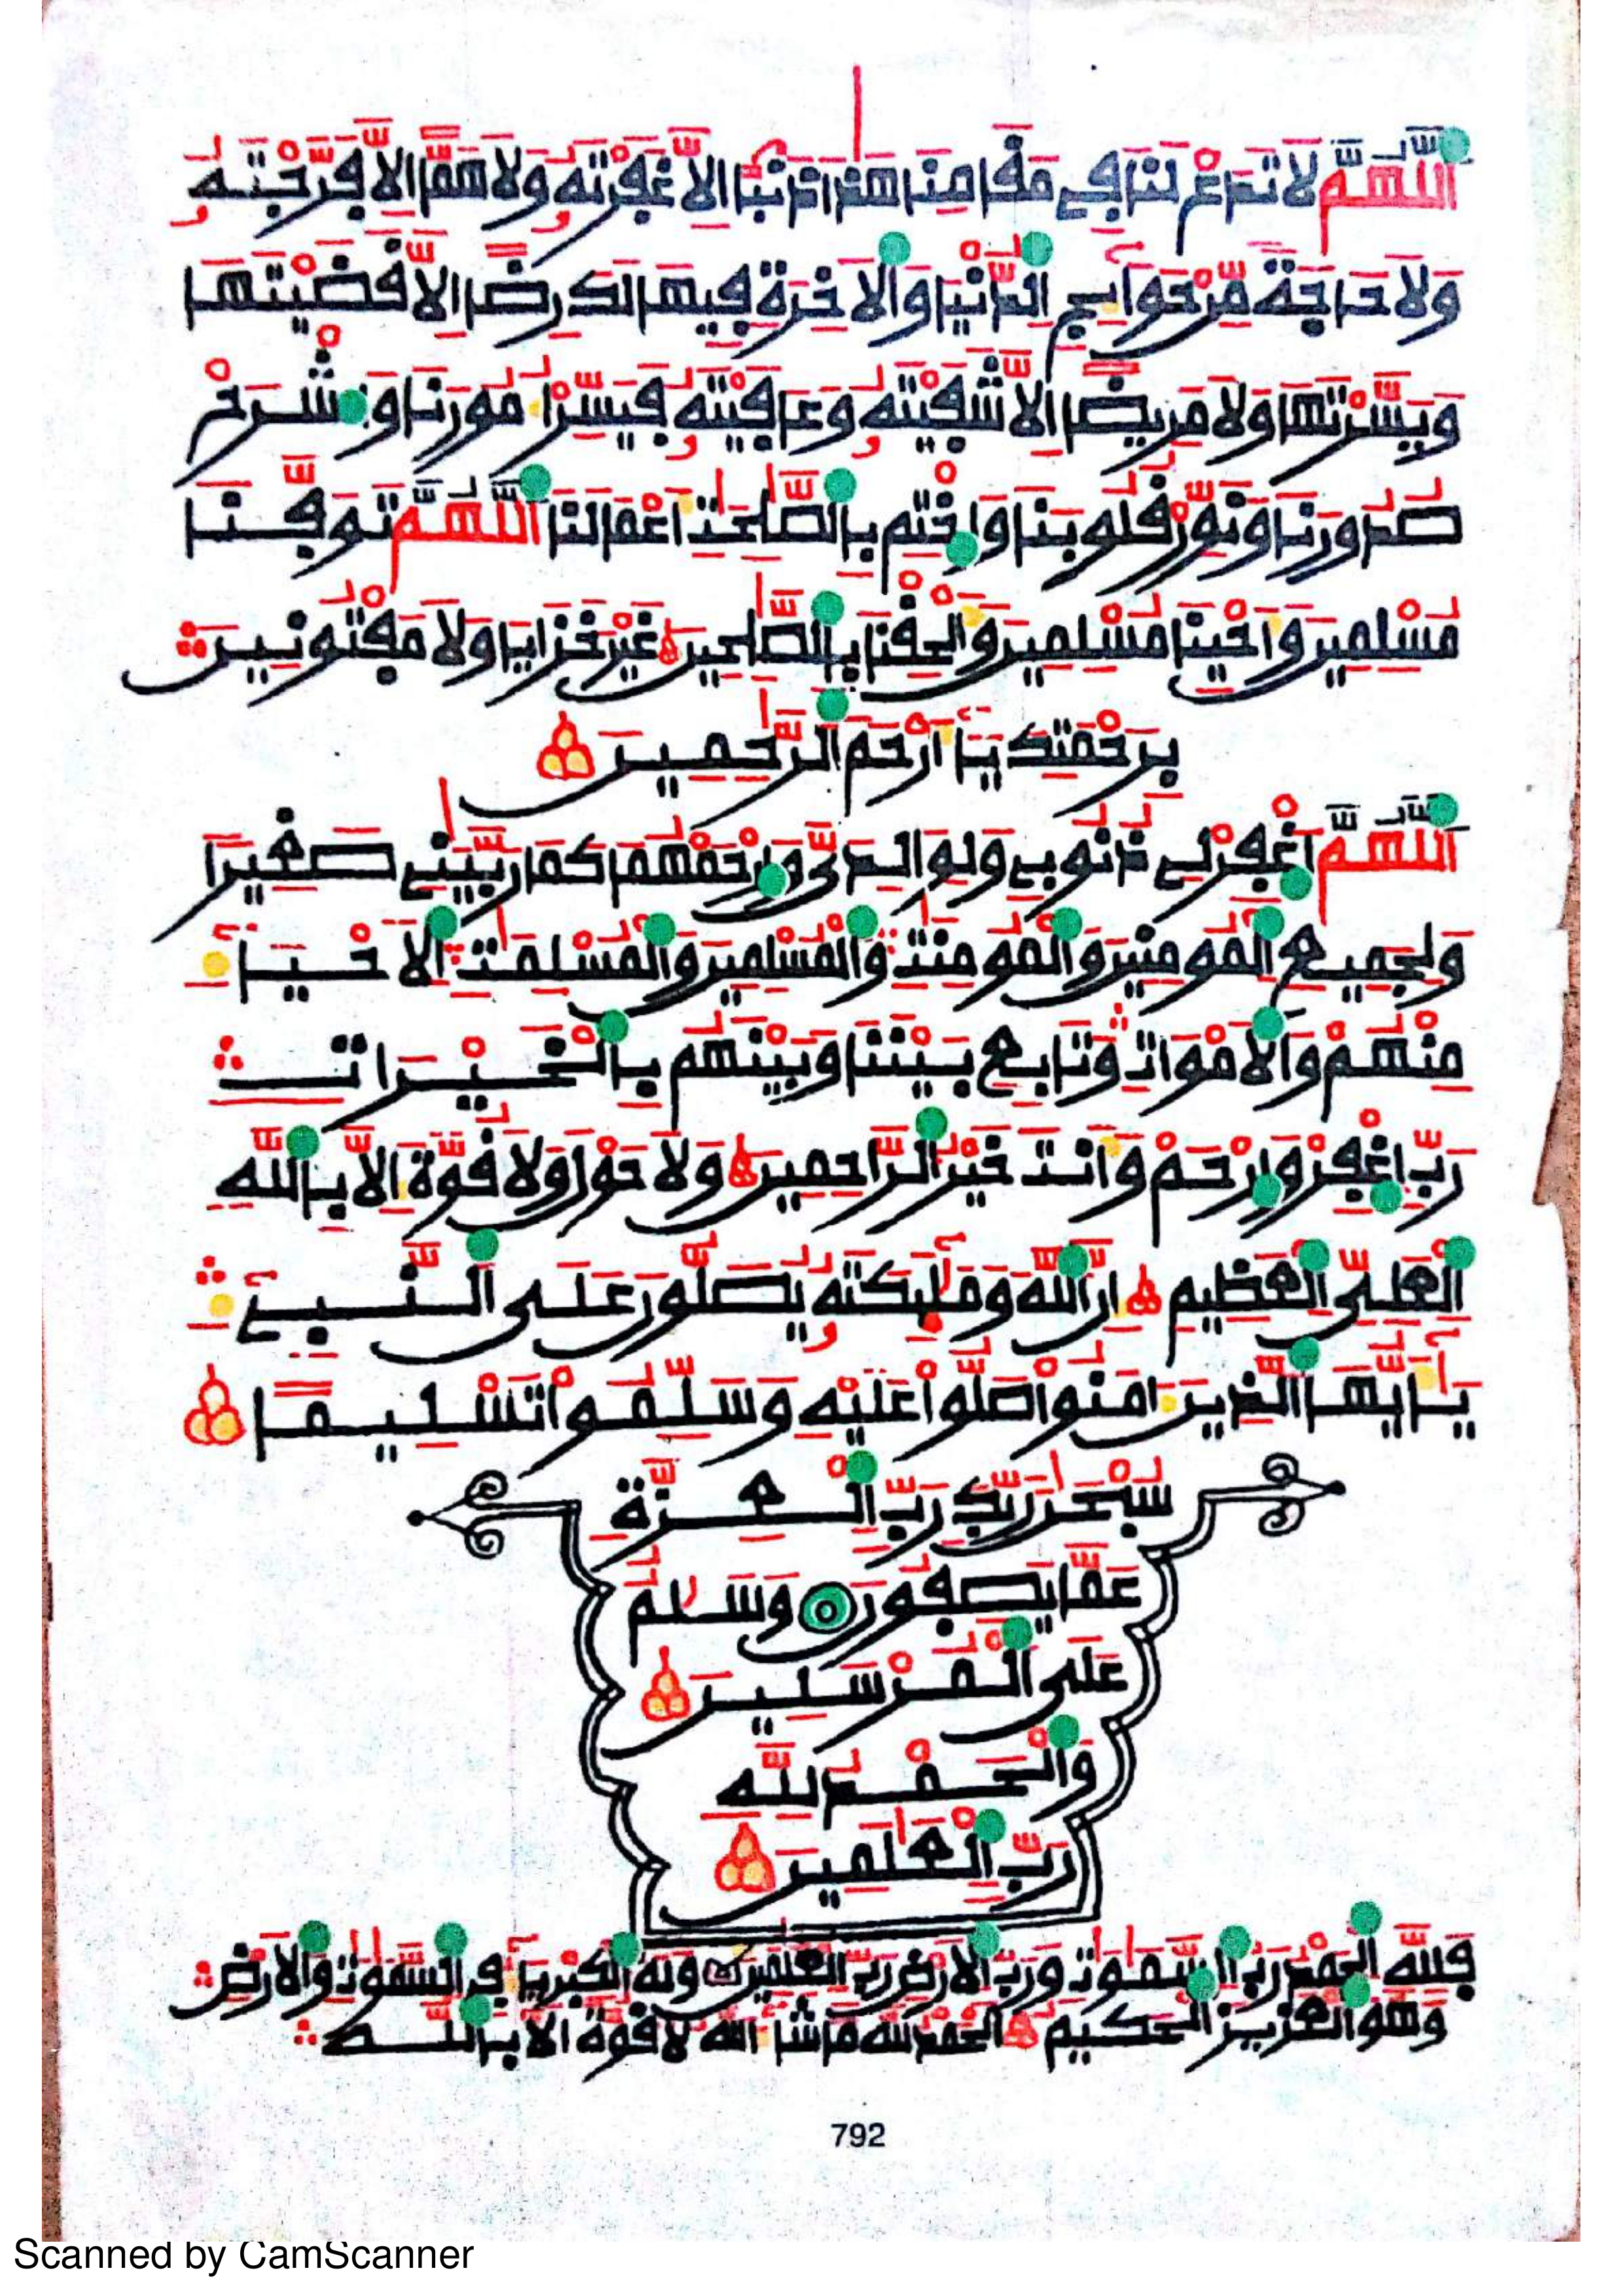 اَللَّهُمَّ لَا تَدَعْ لَنَا فِي مَقَامِنَا هَذَا ذَنْبًا إِلَّا غَفَرْتَهُ وَلَا هَمًّا إِلَّا فَرَّجْتَهُ
وَلَا حَاجَةً مِّنْ حَوَآئِجِ الدُّنْيَا وَالْاَخِرَةِ فِيهَا لَكَ رِضًا إِلَّا قَضَيْتَهَا
وَيَسَّرْتَهَا وَلَا مَرِيضًا إِلَّا شَفَيْتَهُ وَعَافَيْتَهُ فَيَسِّرُ امُورَنَا وَاشْرَحْ
صُدُورَنَا وَنَوِّرْ قُلُوبَنَا وَاخْتِمْ بِالصَّلِحَتِ أَعْمَالَنَا اَللَّهُمَّ تَوَفَّنَا
مُسْلِمِينَ وَأَحْيِنَا مُسْلِمِينَ وَأَلْحِقْنَا بِالصَّلِحِينَ غَيْرَ خَزَايَا وَلَا مَفْتُونِينَ
بِرَحْمَتِكَ يَآ أَرْحَمَ الرَّحِمِينَ
اَللَّهُمَّ اَغْفِرْ لِي ذُنُوبِي وَلِوَالِدَيَّ وَارْحَمْهُمَا كَمَا رَبَّيَنِي صَغِيرًا
وَلِجَمِيعِ الْمُومِنِينَ وَالْمُومِنَتِ وَالْمُسْلِمِينَ وَالْمُسْلِمَتِ الَاحْيَآءِ
مِنْهُمْ وَالَامْوَاتِ وَتَابِعْ بَيْنَنَا وَبَيْنَهُم بِالْخَيْرَاتِ
رَبِّ اغْفِرْ وَارْحَمْ وَأَنتَ خَيْرُ الرَّاحِمِينَ وَلَا حَوْلَ وَلَا قُوَّةَ إِلَّا بِاللَّهِ
الْعَلِيِّ الْعَظِيمِ إِنَّ اللَّهَ وَمَلَئِكَتَهُ يُصَلُّونَ عَلَى النَّبِيءِ
يَآ أَيُّهَا الَّذِينَ ءَامَنُواْ صَلُّواْ عَلَيْهِ وَسَلِّمُواْ تَسْلِيمًا
سُبْحَنَ رَبِّكَ رَبِّ الْعِزَّةِ
عَمَّا يَصِفُونَ وَسَلَمٌ
عَلَى الْمُرْسَلِينَ
وَالْحَمْدُ لِلَّهِ
رَبِّ الْعَلَمِينَ
فَلِلَّهِ الْحَمْدُ رَبِّ السَّمَوَتِ وَرَبِّ الَارْضِ رَبِّ الْعَلَمِينَ وَلَهُ الْكِبْرِيَآءُ فِي السَّمَوَتِ وَالَارْضِ
وَهُوَ الْعَزِيزُ الْحَكِيمُ الْحَمْدُ لِلَّهِ مَا شَآءَ اللَّهُ لَا قُوَّةَ إِلَّا بِاللَّهِ
792
Scanned by CamScanner